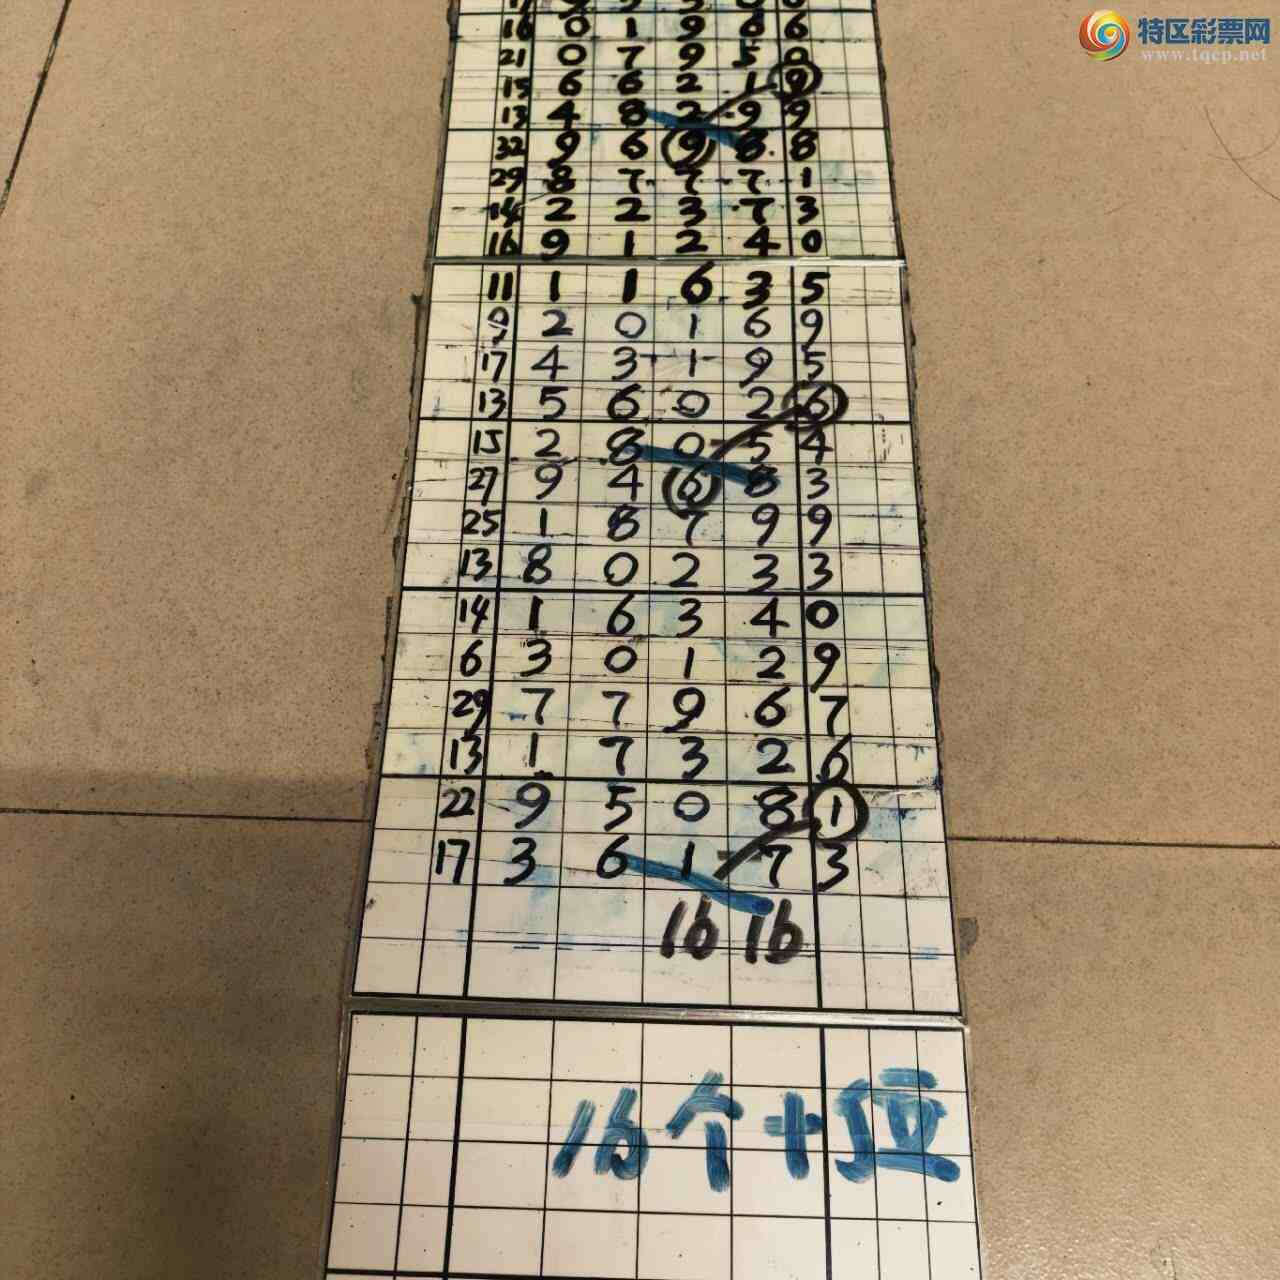 特区彩票网
www.tqcp.net
16 0 1 9 6 6
21 0 7 9 5 0
15 6 6 2 1 9
13 4 8 2 9 9
32 9 6 9 8 8
29 8 7 7 7 1
14 2 2 3 7 3
16 9 1 2 4 0
11 1 1 6 3 5
9 2 0 1 6 9
17 4 3 1 9 5
13 5 6 0 2 6
15 2 8 0 5 4
27 9 4 6 8 3
25 1 8 7 9 9
13 8 0 2 3 3
14 1 6 3 4 0
6 3 0 1 2 9
29 7 7 9 6 7
13 1 7 3 2 6
22 9 5 0 8 1
17 3 6 1 7 3
16 16
16个十位